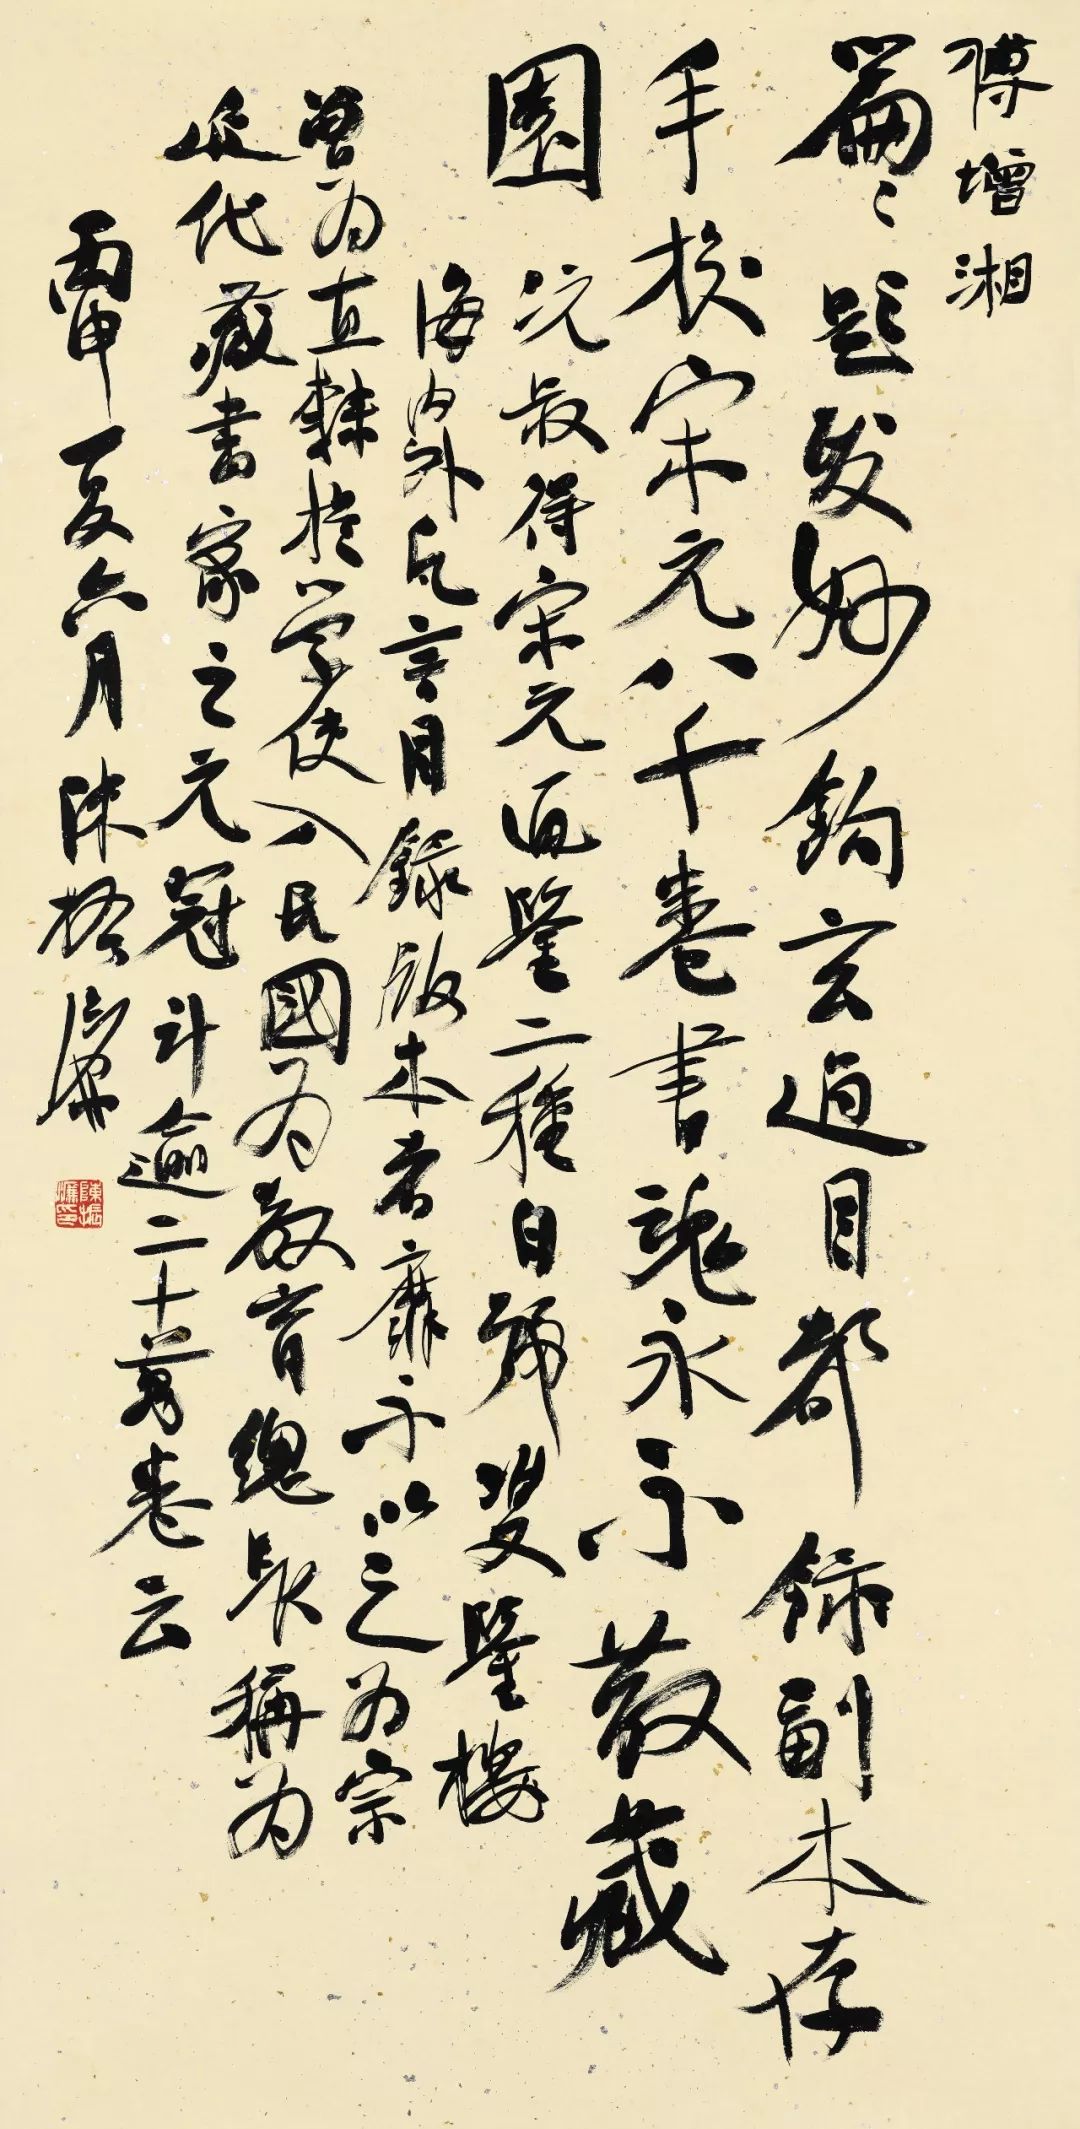 傅增湘
篇篇題跋妙鉤玄過目都錄副本存
手校宋元八千卷書魂永不散藏
園 沅叔得宋元通鑒二種自號雙鑒樓
海內外凡言目錄版本者靡不以之為宗
曾為直隸提學使入民國為教育總長稱為
近代藏書家之元冠計逾二十萬卷云
丙申夏六月陳振濂
陳振濂印